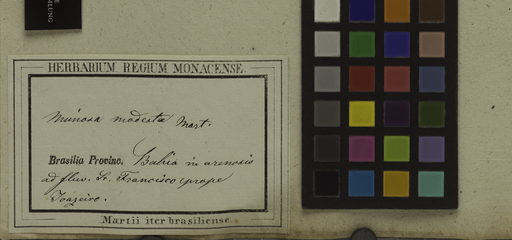 LUNG
HERBARIUM REGIUM MONACENSE.
Mimosa modesta Mart.
Brasilia Provinc. Bahia in arenosis
ad fluv. St. Francisco prope
Joazeiro.
Martii iter brasiliense.